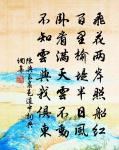 飛花兩岸照船紅
百里榆堤半日風
臥看滿天雲不動
不知雲與我俱東
陳與義襄邑道中詞典